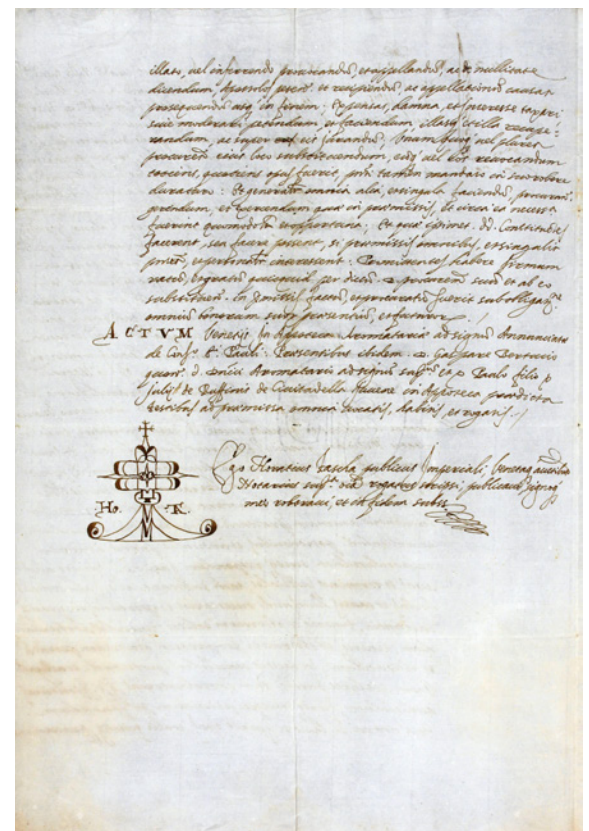 illato, vel inferendo procurandũ, et appellandũ, ac de nullitate
dicendum, Apostolos petend. et recipiendũ, ac appellationũ causas
prosequendũ usq; in finem: Expensas, damna, et interesse taxari
suie moderari petendum, et faciendum, illasq; et illa recupe-
randum, ac super eis jurandũ; Unumq; vel plures
procurẽ eius loco substituendum, eosq; vel eor̃ revocandum
toties, quoties opus fuerit, pñti tamen mandato in suo robore
duraturo: Et generalr̃ omnia alia, et singula faciendũ, procurañ.
gerendum, et exercendum quæ in præmissis, et circa ea necess.ᵃ
fuerint quomodolt̃ et opportuna: Et quæ ipsimet dd. Constituẽtes
facerent, seu facere possent, si præmissis omnibus, et singulis
pñtes, et personalr̃ interessent: Promittentes habere firmum
ratũ, et gratũ quicquid per dictũ D. procurem̃ suum et ab eo
substituẽd. in præmissis factũ, et procuratũ fuerit sub obligañe
omniũ bonorum suor̃ præsentiũ, et futuror̃.
ACTVM Venetijs in Apotheca Aromatarij ad signũ Annunciatæ
de Confº. Sᵗⁱ. Pauli: Præsentibus ibidem D. Gaspare
quonᵐ. d. Aromatario ad signũ supᵗᵘᵐ et D. Paulo filio D.
Julij de de Civitadella in Apotheca prædicta
testibus ad præmissa omnia vocatis, habitis, et rogatis./
Ho. K.
Ego Horatius publicus Imperiali, Venetaq; auctᵗᵉ
Notarius supᵗᵃ oĩa rogatus scripsi, publicavi, signoq;
meo roboravi, et in fidem subss.